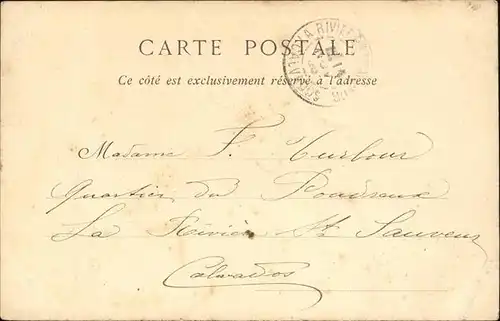 CARTE POSTALE
Ce côté est exclusivement réservé à l'adresse
LA RIVIÈ
Madame F. Turlour
Quartier du
La Rivière St Sauveur
Calvados